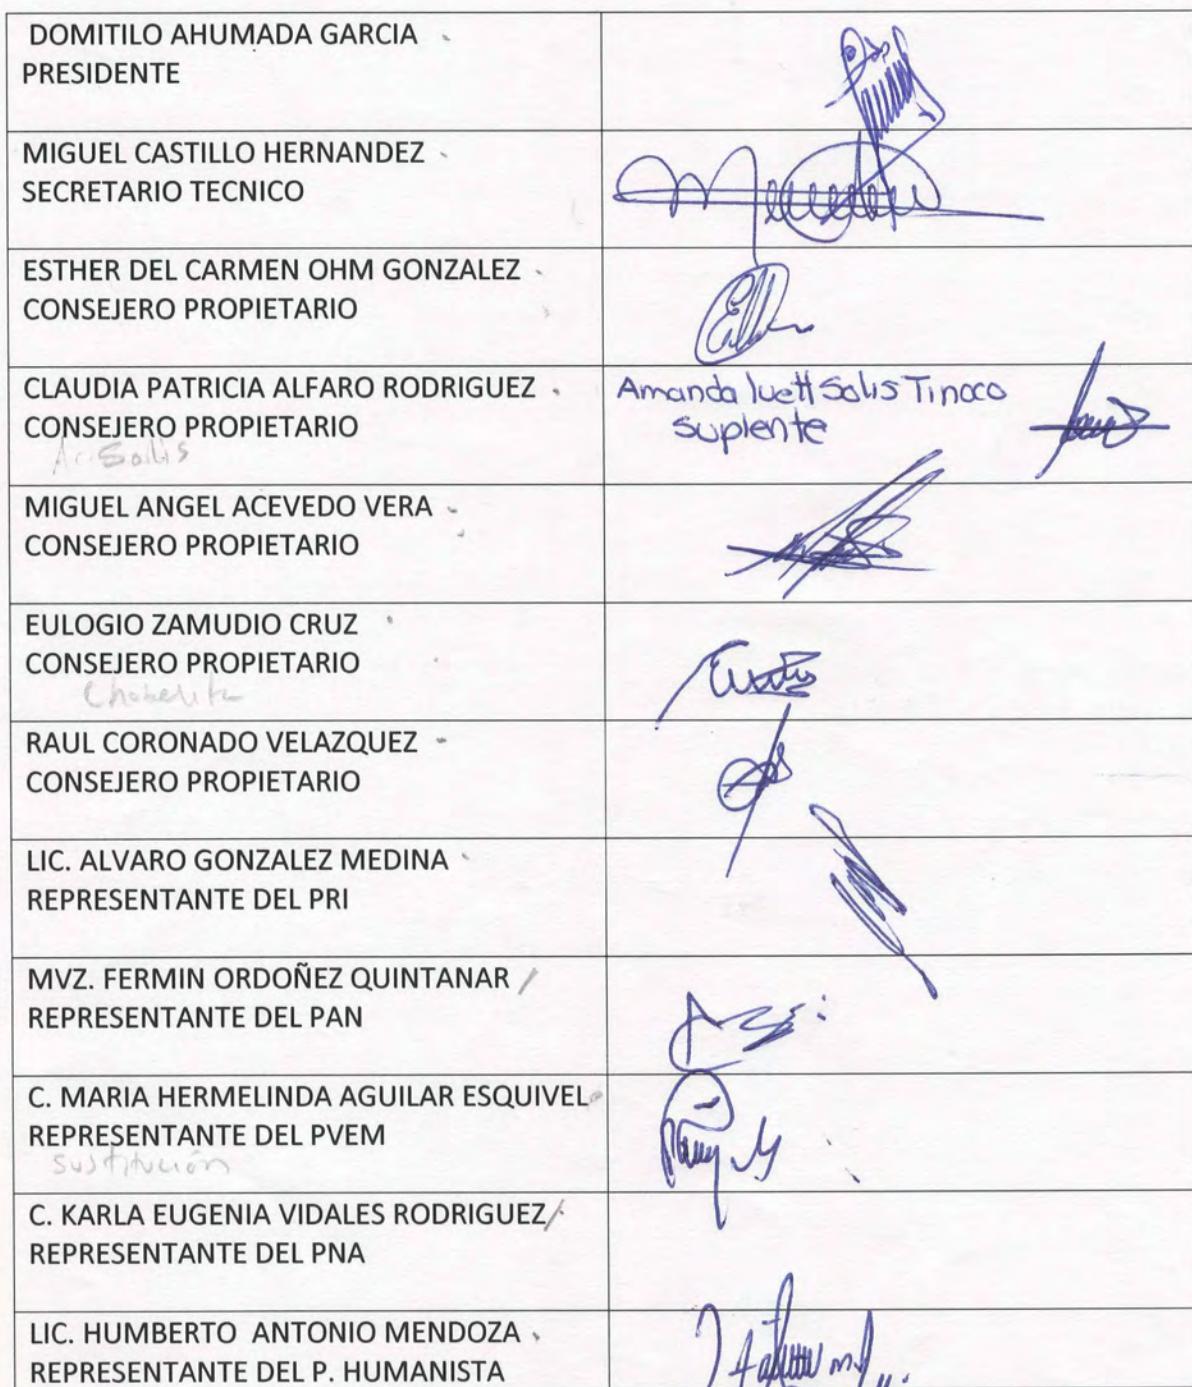 DOMITILO AHUMADA GARCIA
PRESIDENTE
MIGUEL CASTILLO HERNANDEZ
SECRETARIO TECNICO
ESTHER DEL CARMEN OHM GONZALEZ
CONSEJERO PROPIETARIO
CLAUDIA PATRICIA ALFARO RODRIGUEZ
CONSEJERO PROPIETARIO
Solis
Amanda Ivett Solis Tinoco
Suplente
MIGUEL ANGEL ACEVEDO VERA
CONSEJERO PROPIETARIO
EULOGIO ZAMUDIO CRUZ
CONSEJERO PROPIETARIO
Chabelita
RAUL CORONADO VELAZQUEZ
CONSEJERO PROPIETARIO
LIC. ALVARO GONZALEZ MEDINA
REPRESENTANTE DEL PRI
MVZ. FERMIN ORDOÑEZ QUINTANAR
REPRESENTANTE DEL PAN
C. MARIA HERMELINDA AGUILAR ESQUIVEL
REPRESENTANTE DEL PVEM
Sustitución
C. KARLA EUGENIA VIDALES RODRIGUEZ
REPRESENTANTE DEL PNA
LIC. HUMBERTO ANTONIO MENDOZA
REPRESENTANTE DEL P. HUMANISTA